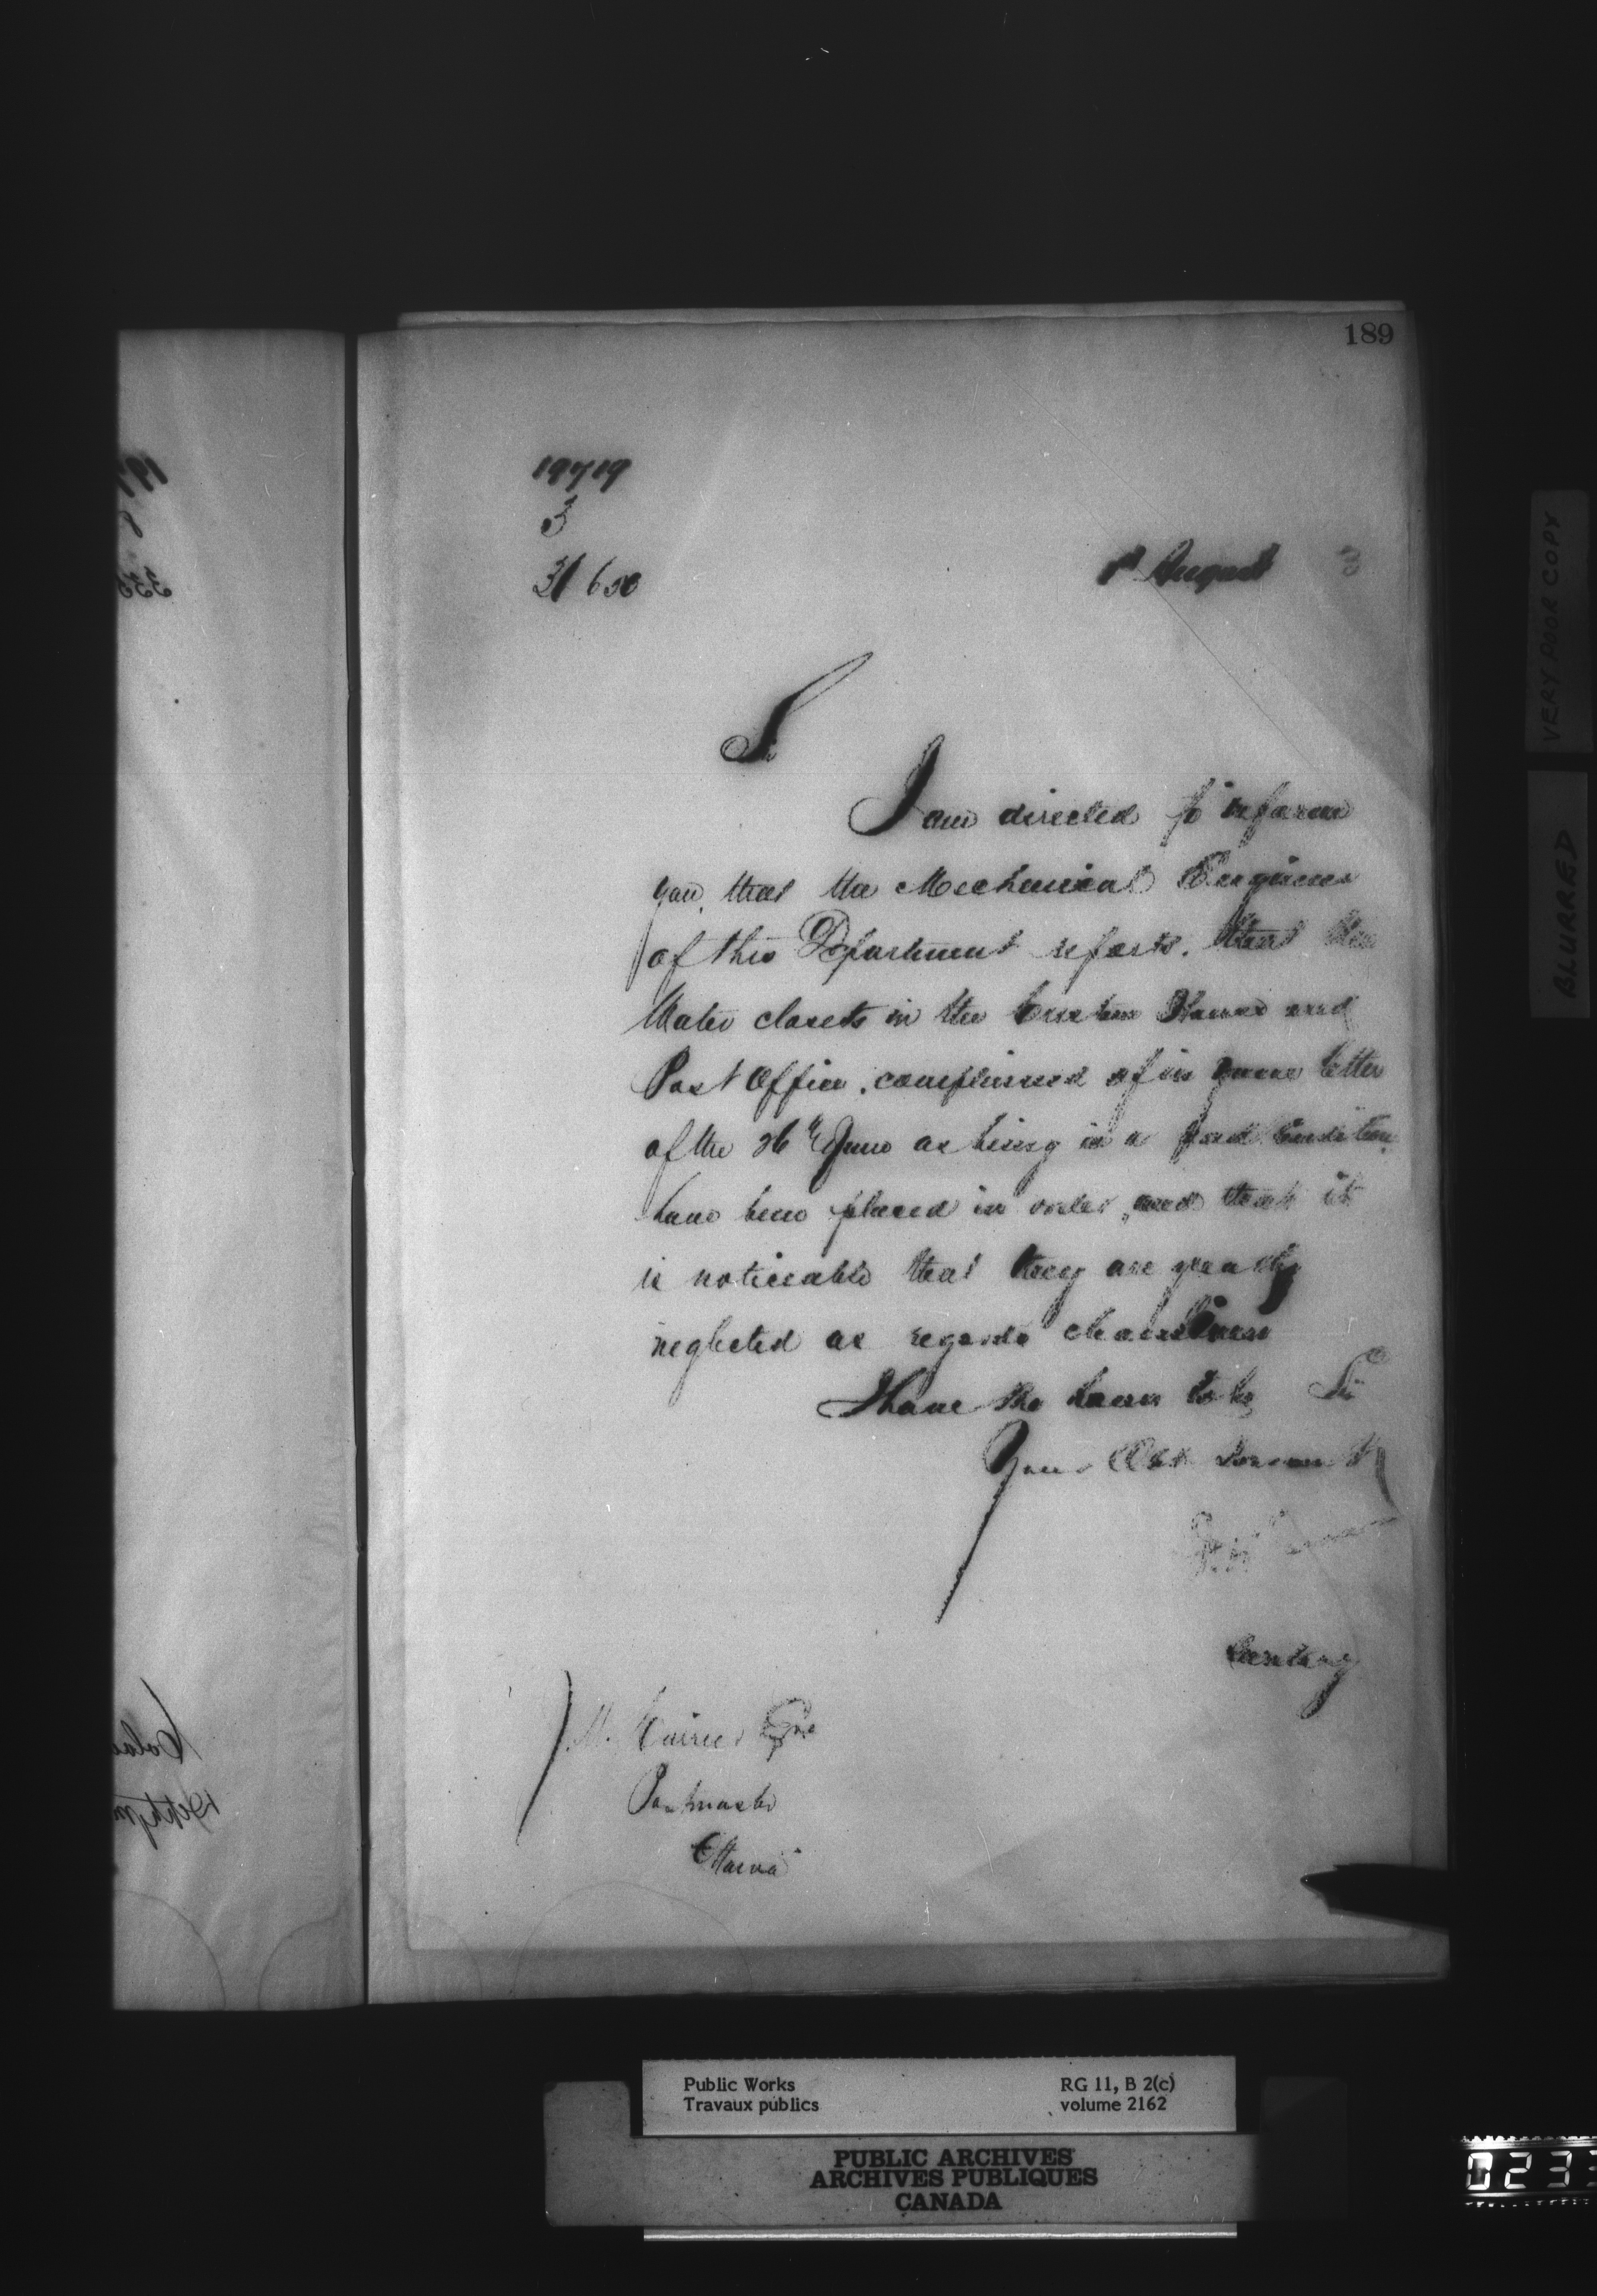 189
19719
3
31650
1st August 3
Sir
I am directed to inform
you, that the Mechanical Engineer
of this Department reports, that the
Water closets in the Custom House and
Post Office, complained of in your letter
of the 26th June as being in a bad condition,
have been placed in order, and that it
is noticeable that they are greatly
neglected as regards cleanliness
I have the honor to be Sir
Your Obt Servant
Secretary
Postmaster
Ottawa
VERY POOR COPY
BLURRED
Public Works
Travaux publics
RG 11, B 2(c)
volume 2162
PUBLIC ARCHIVES
ARCHIVES PUBLIQUES
CANADA